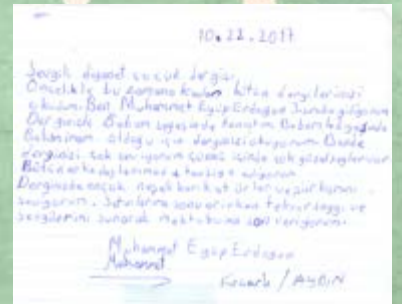 10.22.2017
Sevgili diyanet çocuk dergisi
Öncelikle bu zamana kadar bütün dergilerinizi
okudum. Ben Muhammet Eyüp Erdogan 3. sınıfa gidiyorum
Derginizle Babam sayesinde tanıştım.
Babamın oldugu için derginizi okuyorum. Bende
derginizi çok seviyorum çünkü içinde çok güzel şeyler var
Bütün arkadaşlarıma tavsiye ediyorum
Derginizde en çok
seviyorum. Satırlarıma son verirken tekrar saygı ve
sevgilerimi sunarak mektubuma son veriyorum.
Muhammet Eyüp Erdogan
Muhammet
/ AYDIN